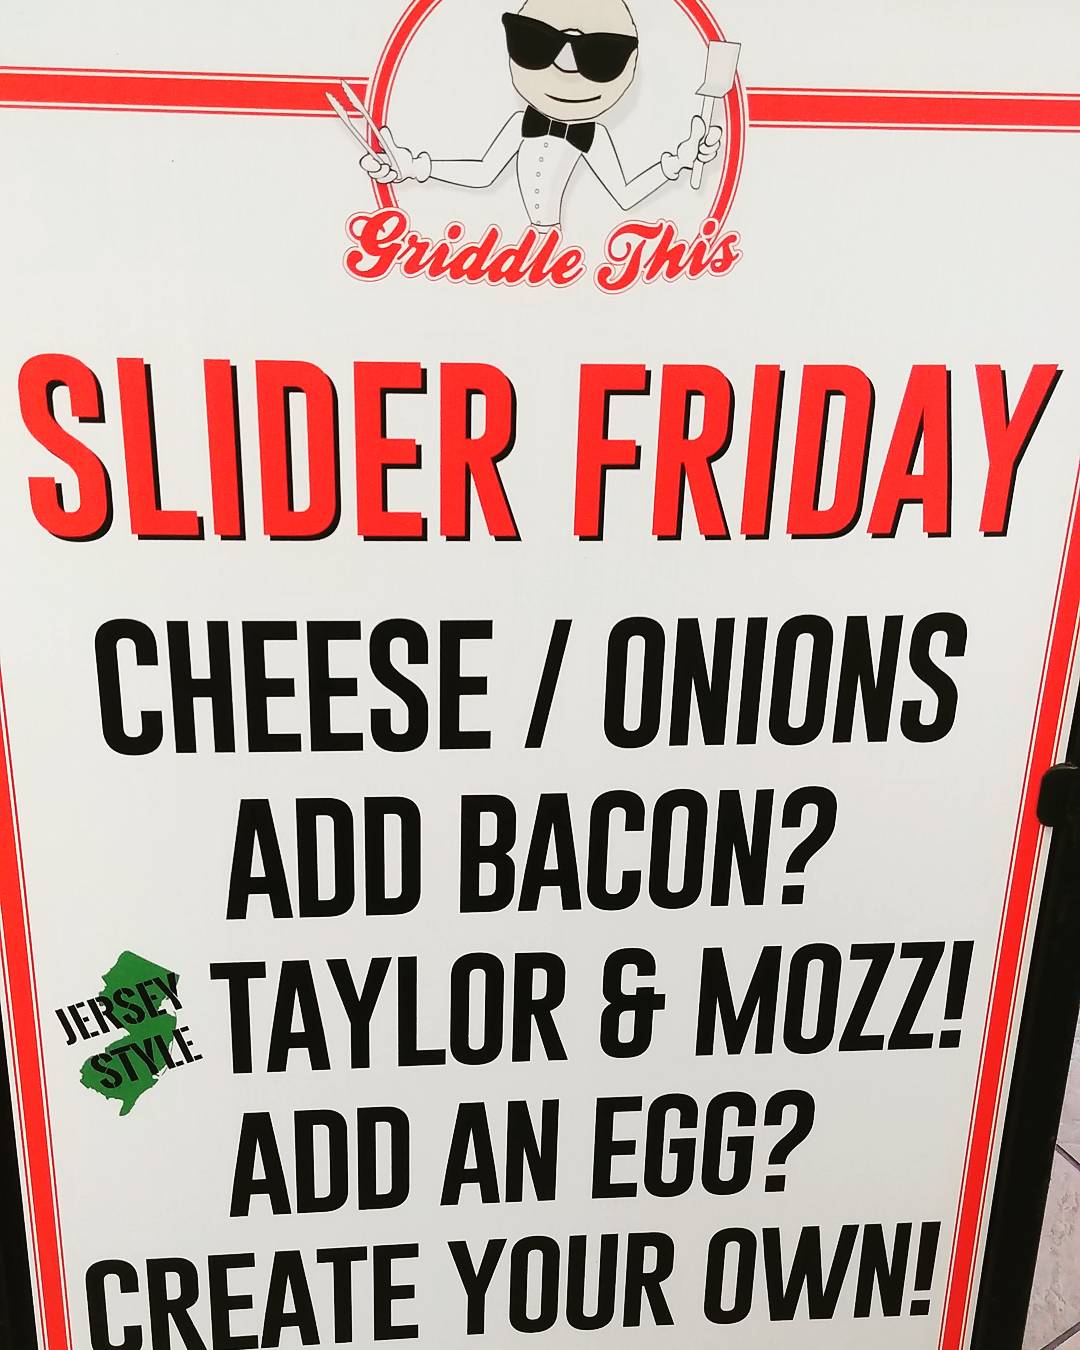 Griddle This
SLIDER FRIDAY
CHEESE / ONIONS
ADD BACON?
JERSEY
STYLE
TAYLOR & MOZZ!
ADD AN EGG?
CREATE YOUR OWN!